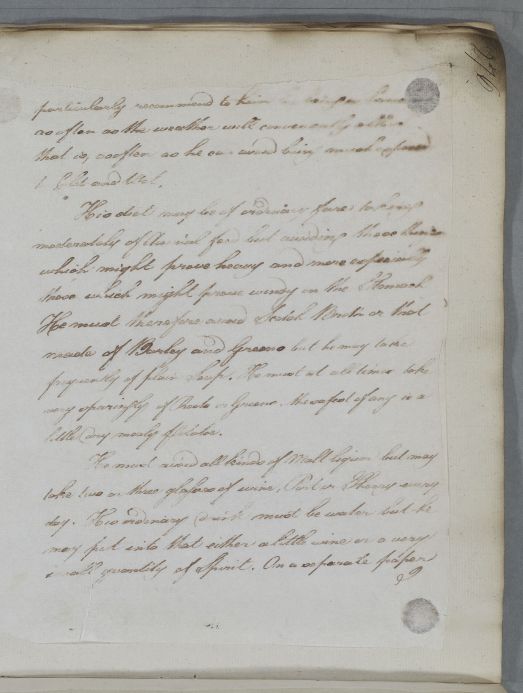 particularly recommend to him
as often as the weather will conveniently allow
that is, as often as he can avoid being much exposed
to Cold and Wet.
His diet may be of ordinary fare taking
moderately of Animal food but avoiding those things
which might prove heavy and more especially
those which might prove windy on the Stomach
He must therefore avoid Scotch Broth or that
made of Barley and Greens but he may take
frequently of plain Soup. He must at all times take
very sparingly of Roots or Greens. the safest of any is a
little dry mealy potatoe.
He must avoid all kinds of Malt liquor but may
take two or three glasses of wine, Port or Sherry every
day. His ordinary drink must be water but he
may put into that either a little wine or a very
small quantity of Spirit. On a separate paper